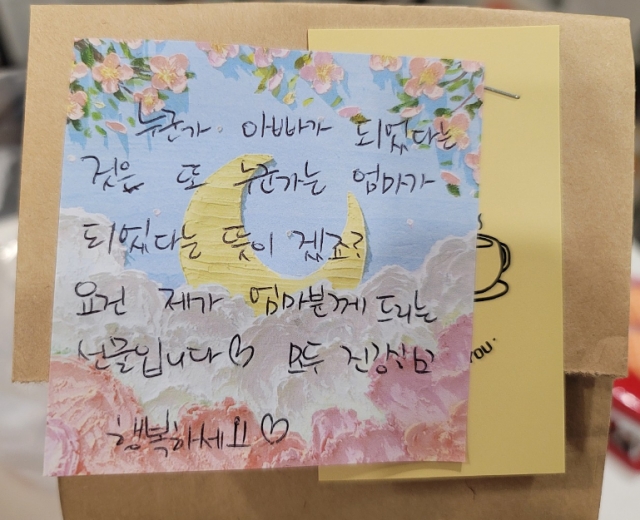 누군가 아빠가 되었다는
것은 또 누군가는 엄마가
되었다는 뜻이 겠죠?
요건 제가 엄마분께 드리는
선물입니다♡ 모두 건강하고
행복하세요♡
YOU.